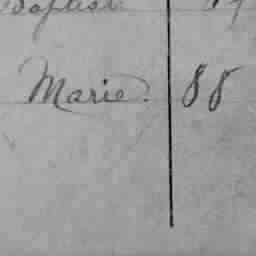 Baptiste
Marie. 88